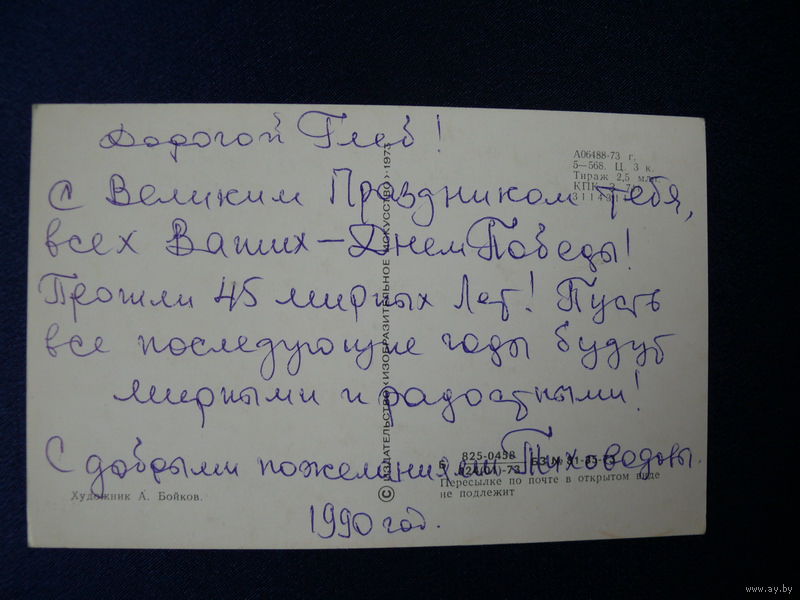 Дорогой Глеб!
А06488-73 г.
5—568. Ц. 3 к.
Тираж 2,5 млн.
С Великим Праздником тебя,
всех Ваших – Днем Победы!
Прошли 45 мирных лет! Пусть
все последующие годы будут
мирными и радостными!
С добрыми пожеланиями Тиховодовы.
1990 год.
© ИЗДАТЕЛЬСТВО «ИЗОБРАЗИТЕЛЬНОЕ ИСКУССТВО» · 1973
825-0458
Пересылке по почте в открытом виде
не подлежит
Художник А. Бойков.
www.ay.by